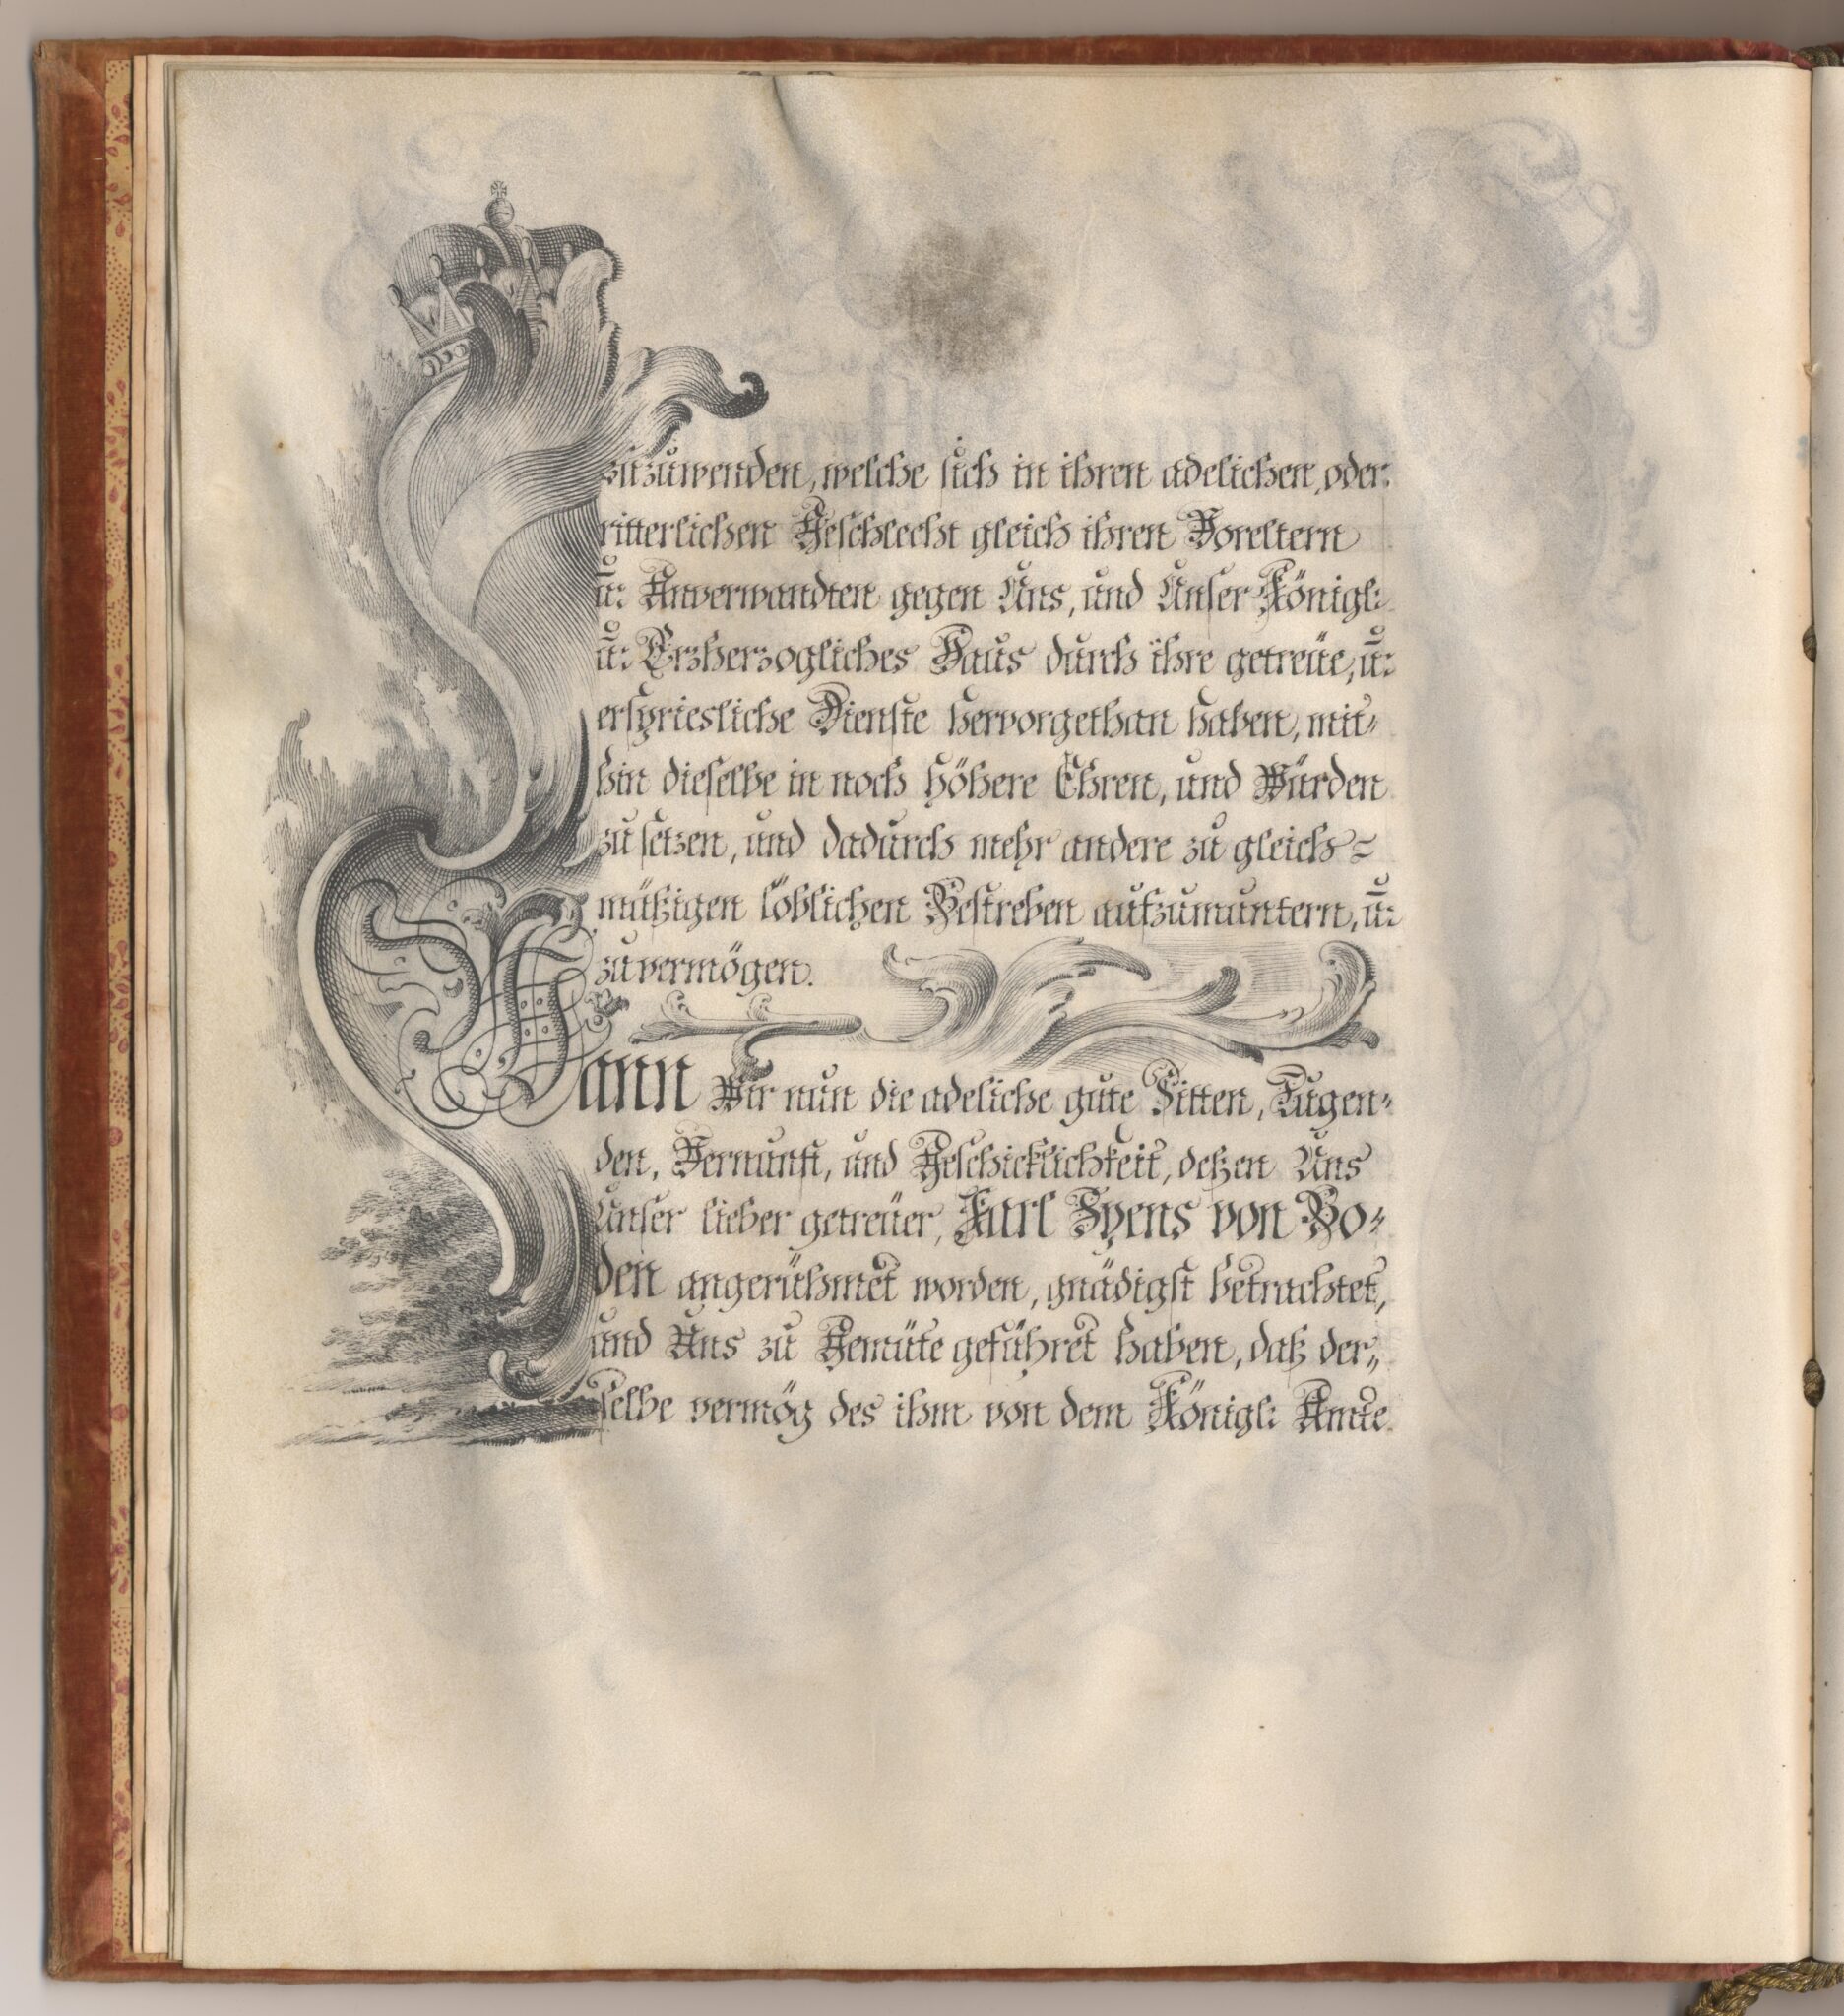 zuzuwenden, welche sich in ihren adelichen, oder
ritterlichen Geschlecht gleich ihren Voreltern
ū: Anverwandten gegen Uns, und Unser Königl:
ū: Erzherzogliches Haus durch ihre getreüe, ū:
erspriesliche Dienste hervorgethan haben, mit⸗
hin dieselbe in noch höhere Ehren, und Würden
zu setzen, und dadurch mehr andere zu gleich⸗
mäßigen löblichen Bestreben aufzumuntern, ū:
zu vermögen.
Wann Wir nun die adeliche gute Sitten, Tugen⸗
den, Vernunft, und Geschicklichkeit, deßen Uns
Unser lieber getreüer, Karl Spens von Bo⸗
den angerühmet worden, gnädigst betrachtet,
und Uns zu Gemüte geführet haben, daß der„
selbe vermög des ihm von dem Königl: Amte